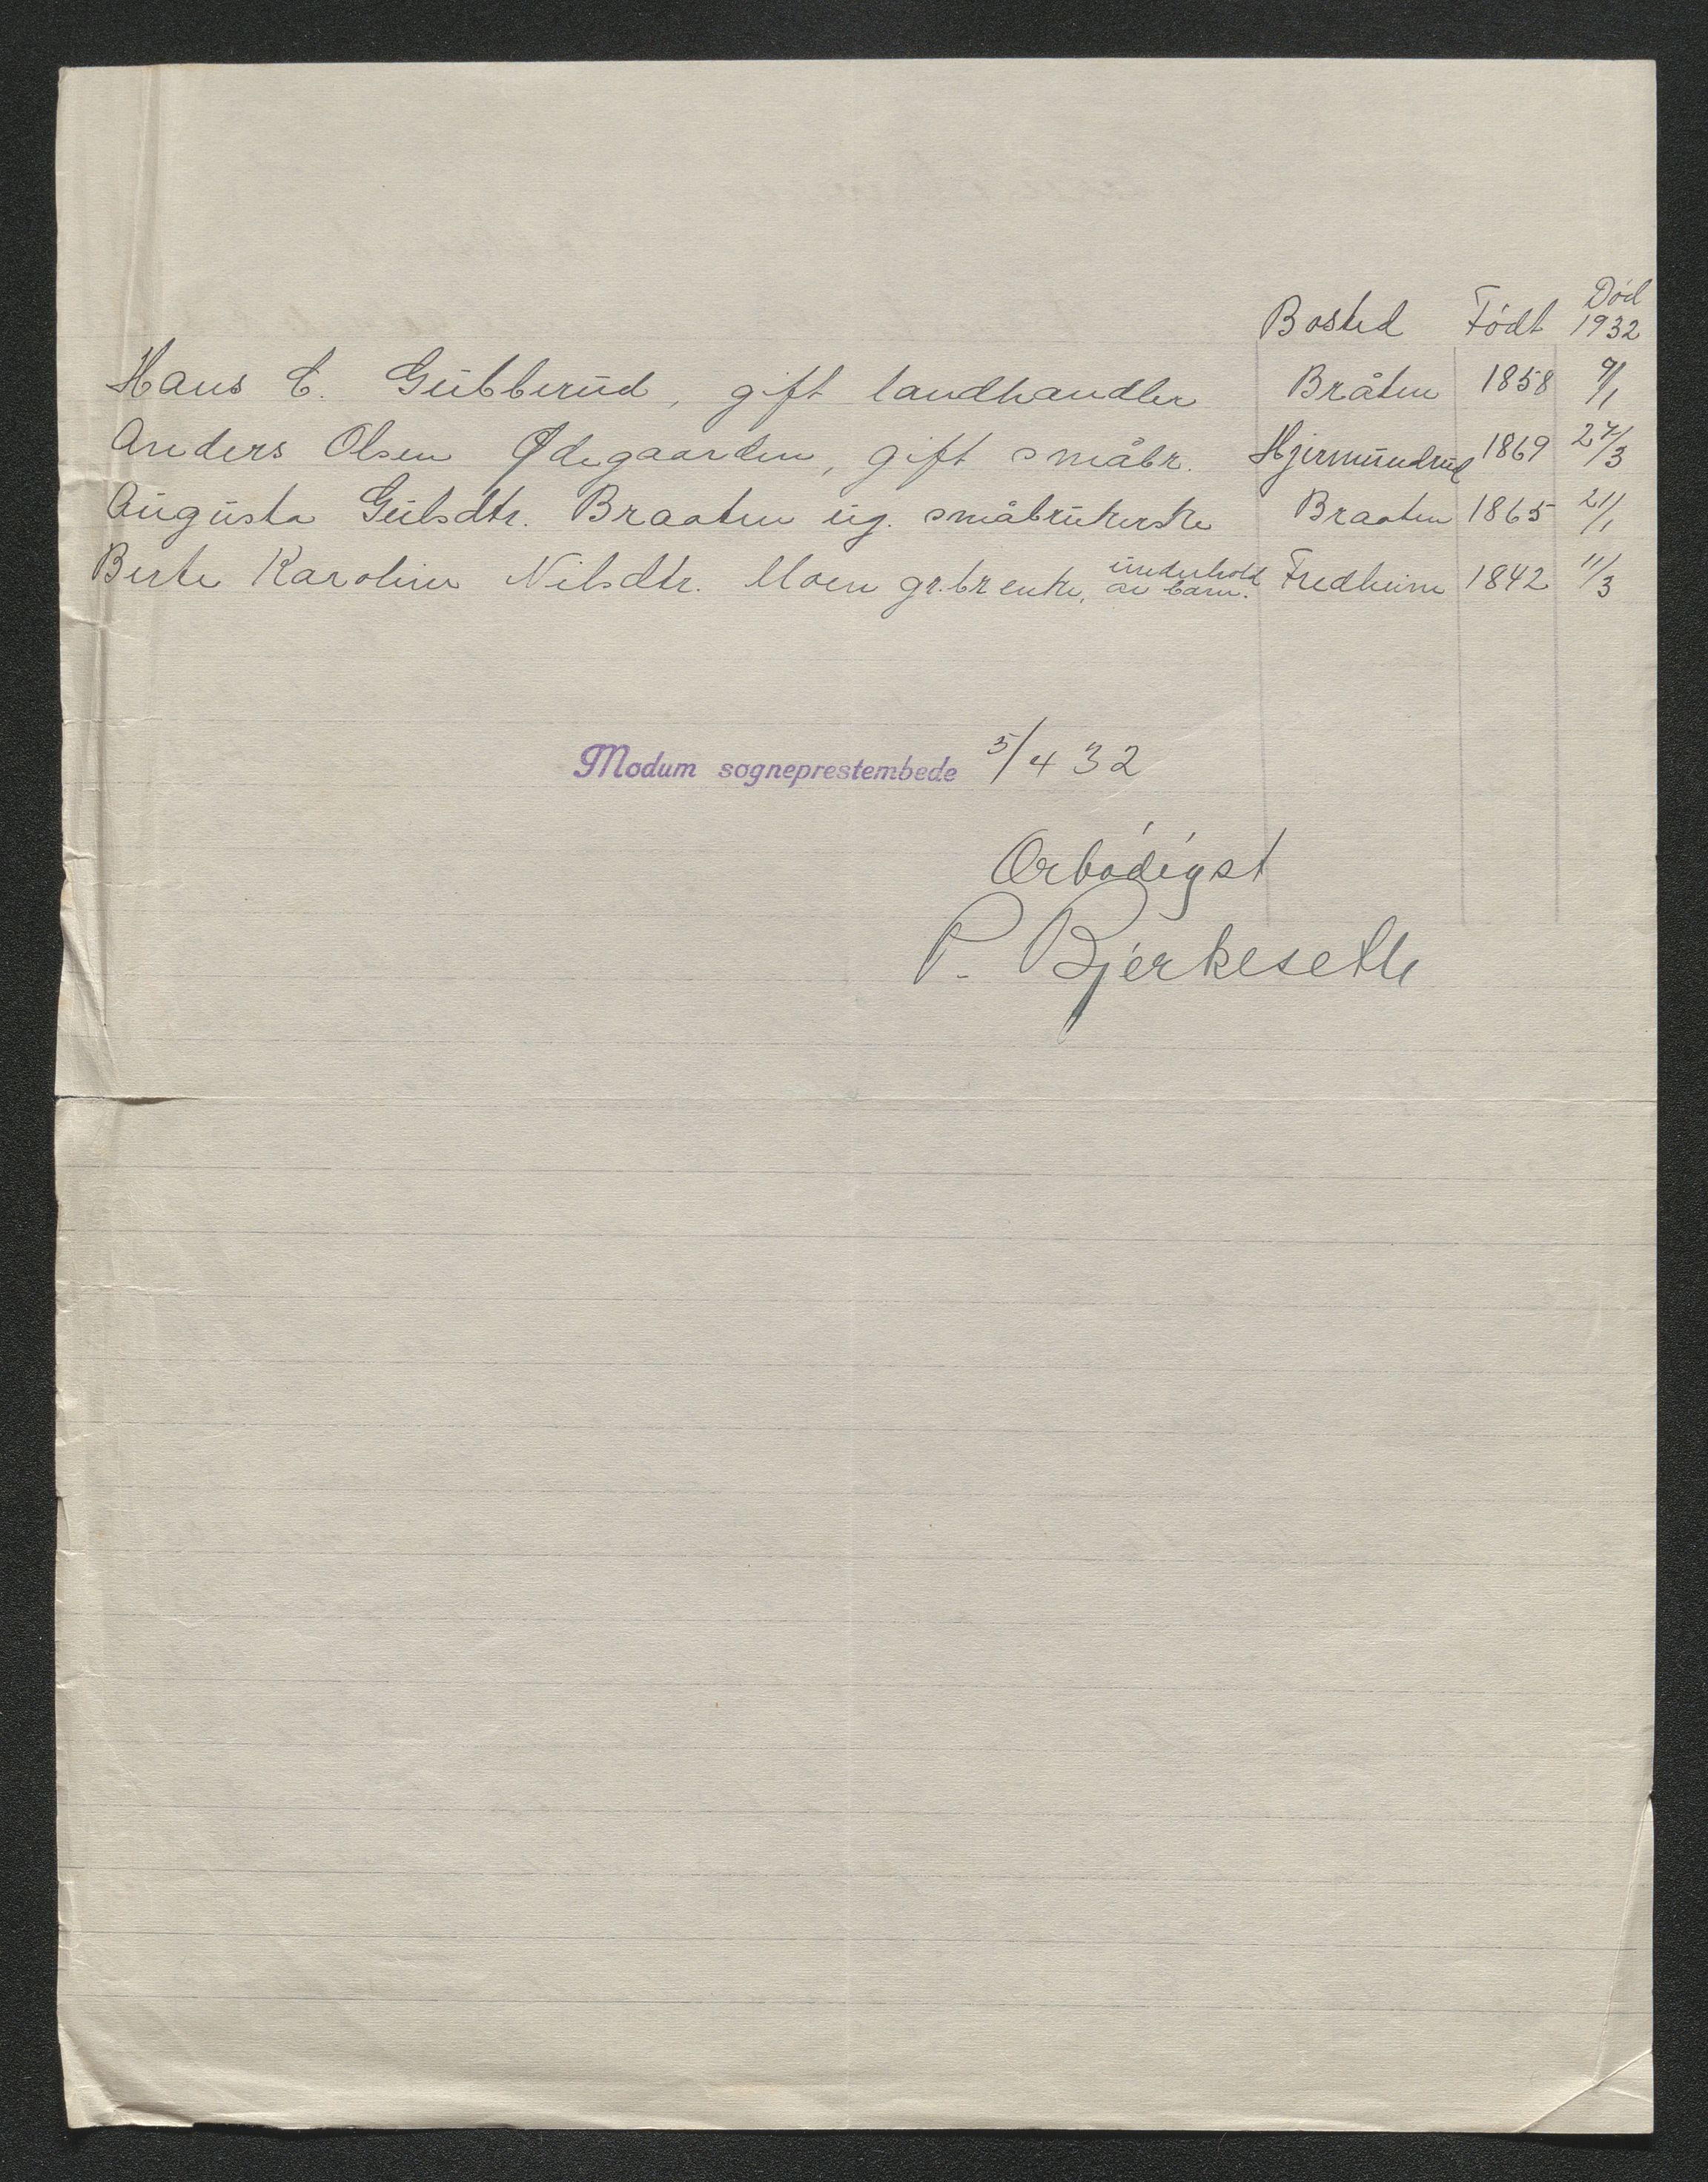 Bosted Födt Död 1932
Hans C. Gubberud, gift landhandler Bråten 1858 9/1
Anders Olsen Ødegaarden, gift småbr. Hjermundrud 1869 27/3
Augusta Gulsdtr. Braaten ug. småbrukerske Braaten 1865 21/1
Berte Karoline Nilsdtr. Moen gr.br enke, underhold av barn. Fredheim 1842 11/3
Modum sogneprestembede 5/4 32
Ærbödigst
P. Bjerkeseth